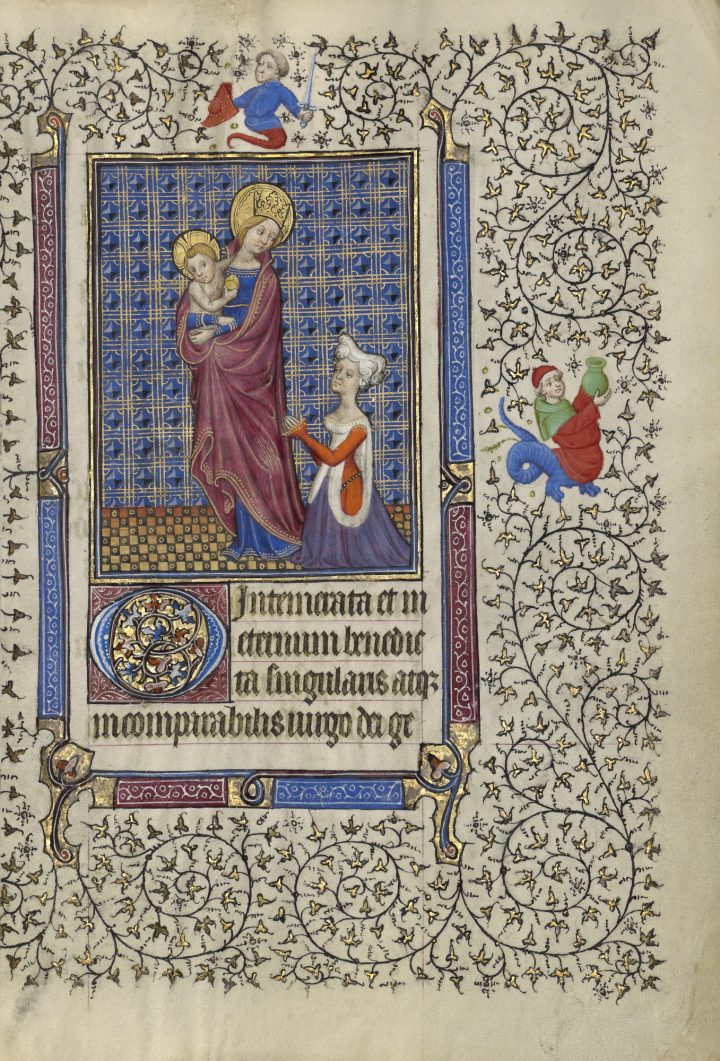 O Intemerata et in
eternum benedic
ta singularis atqꝫ
incomparabilis uirgo dei ge